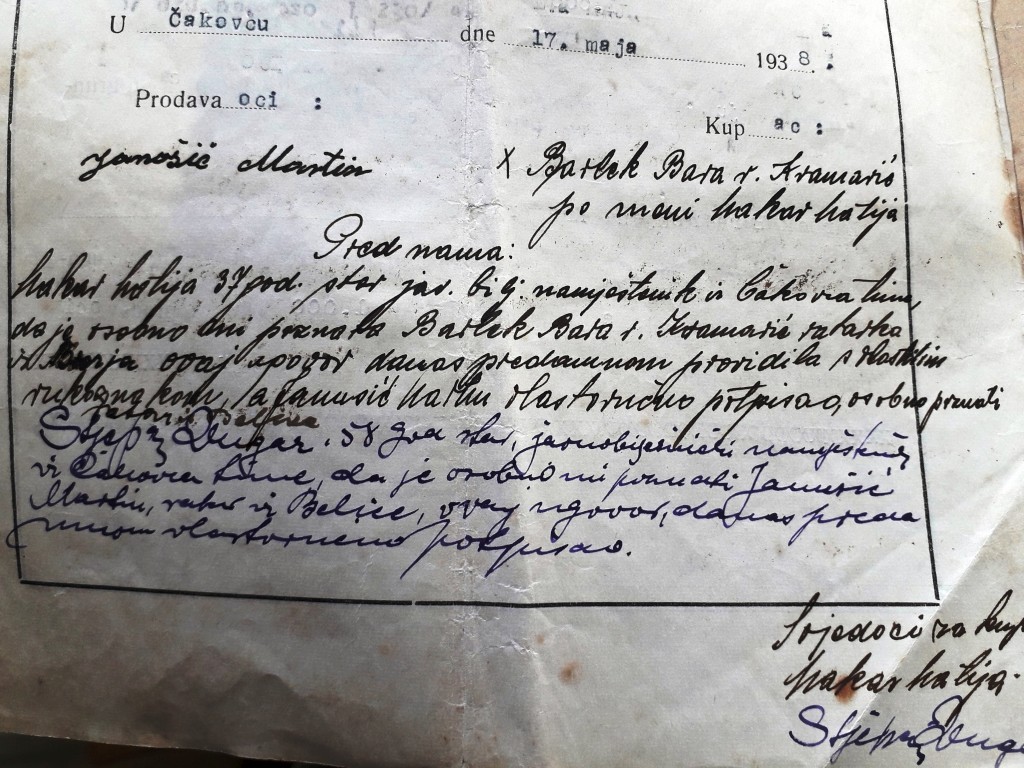 U Čakovcu dne 17. maja 1938.:
Prodava oci :
Kup ac :
Janošić Martin
X Barlek Bara r. Kramarić
po meni Makar Matija
Pred nama:
Makar Matija 37 god. star jav. namještenik iz Čakovca time,
da je osobno mi poznata Barlek Bara r. Kramarić ratarka
iz ovaj ugovor danas predamnom providila s vlastitim
rukoznakom, a Janušić Martin vlastoručno potpisao, osobno poznati
Stjepan Dugar 58 god star, javnobilježnički namještenik
iz Čakovca time, da je osobno mi poznati Janušić
Martin, ratar iz Belice, ovaj ugovor, danas preda
mnom vlastoručno potpisao.
Svjedoci za
Makar Matija
Stjepan